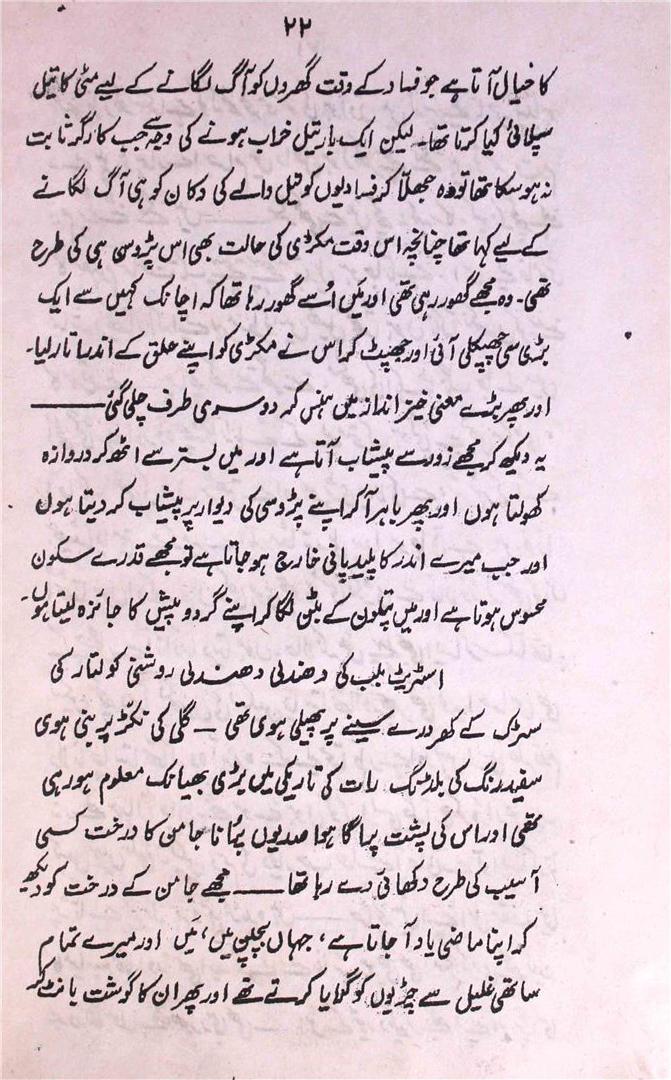 ۲۲
کا خیال آتا ہے جو فساد کے وقت گھروں کو آگ لگانے کے لیے مٹی کا تیل
سپلائی کیا کرتا تھا۔ لیکن ایک بار تیل خراب ہونے کی وجہ سے جب کارگر ثابت
نہ ہو سکا تھا تو وہ جھلّا کر فسادیوں کو تیل والے کی دکان کو ہی آگ لگانے
کے لیے کہا تھا چنانچہ اس وقت مکڑی کی حالت بھی اس پڑوسی ہی کی طرح
تھی۔ وہ مجھے گھور رہی تھی اور میں اُسے گھور رہا تھا کہ اچانک کہیں سے ایک
بڑی سی چھپکلی آئی اور جھپٹ کر اس نے مکڑی کو اپنے حلق کے اندر اتار لیا۔
اور پھر بڑے معنی خیز انداز میں ہنس کر دوسری طرف چلی گئی ——
یہ دیکھ کر مجھے زور سے پیشاب آتا ہے اور میں بستر سے اٹھ کر دروازہ
کھولتا ہوں اور پھر باہر آ کر اپنے پڑوسی کی دیوار پر پیشاب کر دیتا ہوں
اور جب میرے اندر کا پلید پانی خارج ہو جاتا ہے تو مجھے قدرے سکون
محسوس ہوتا ہے اور میں پتلون کے بٹن لگا کر اپنے گرد و پیش کا جائزہ لیتا ہوں۔
اسٹریٹ بلب کی دھندلی دھندلی روشنی کولتار کی
سڑک کے کھردرے سینے پر پھیلی ہوی تھی – گلی کی نکڑ پر بنی ہوی
سفید رنگ کی بلڈنگ رات کی تاریکی میں بڑی بھیانک معلوم ہو رہی
تھی اور اس کی پشت پر اگا ہوا صدیوں پُرانا جامن کا درخت کسی
آسیب کی طرح دکھائی دے رہا تھا —— مجھے جامن کے درخت کو دیکھ
کر اپنا ماضی یاد آ جاتا ہے، جہاں بچپن میں، میں اور میرے تمام
ساتھی غلیل سے چڑیوں کو گرایا کرتے تھے اور پھر ان کا گوشت بانٹ کر